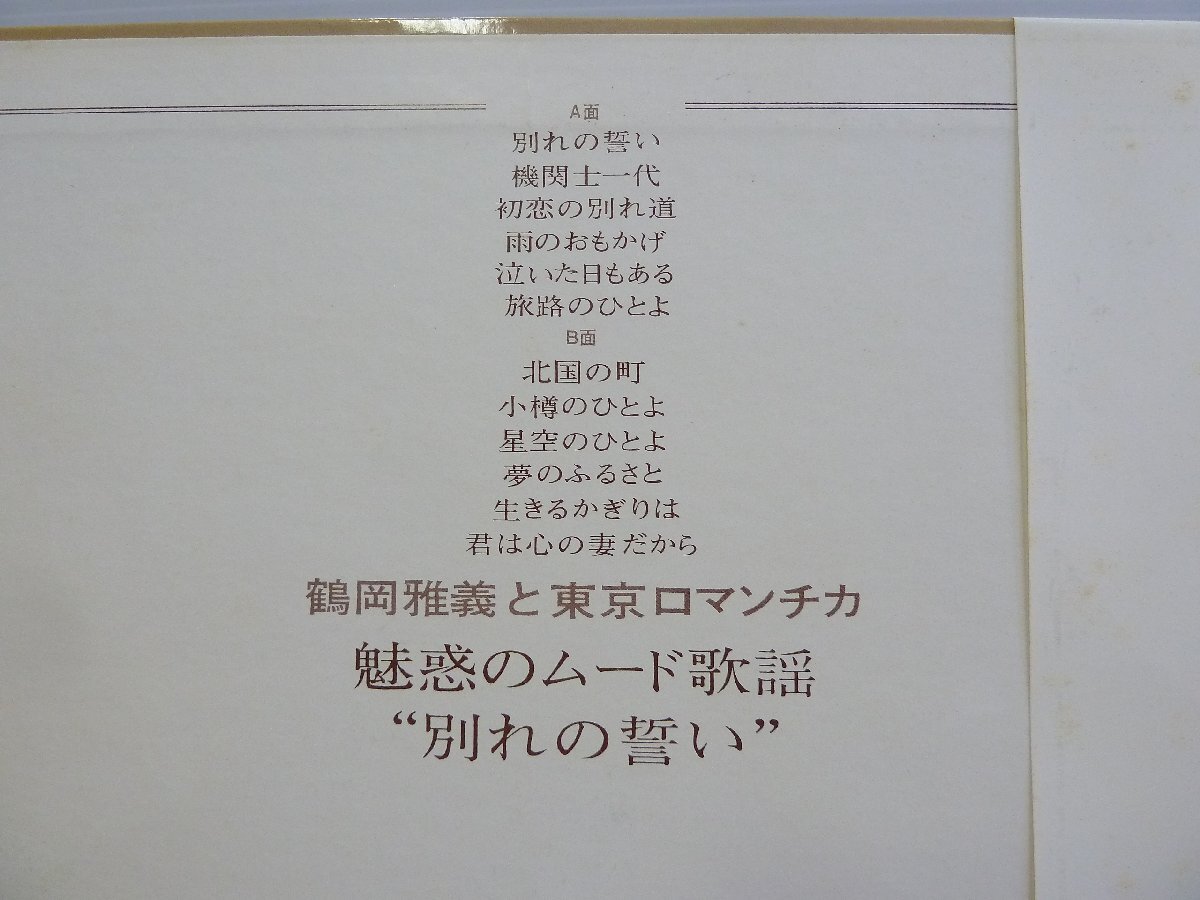 A面
別れの誓い
機関士一代
初恋の別れ道
雨のおもかげ
泣いた日もある
旅路のひとよ
B面
北国の町
小樽のひとよ
星空のひとよ
夢のふるさと
生きるかぎりは
君は心の妻だから
鶴岡雅義と東京ロマンチカ
魅惑のムード歌謡
“別れの誓い”